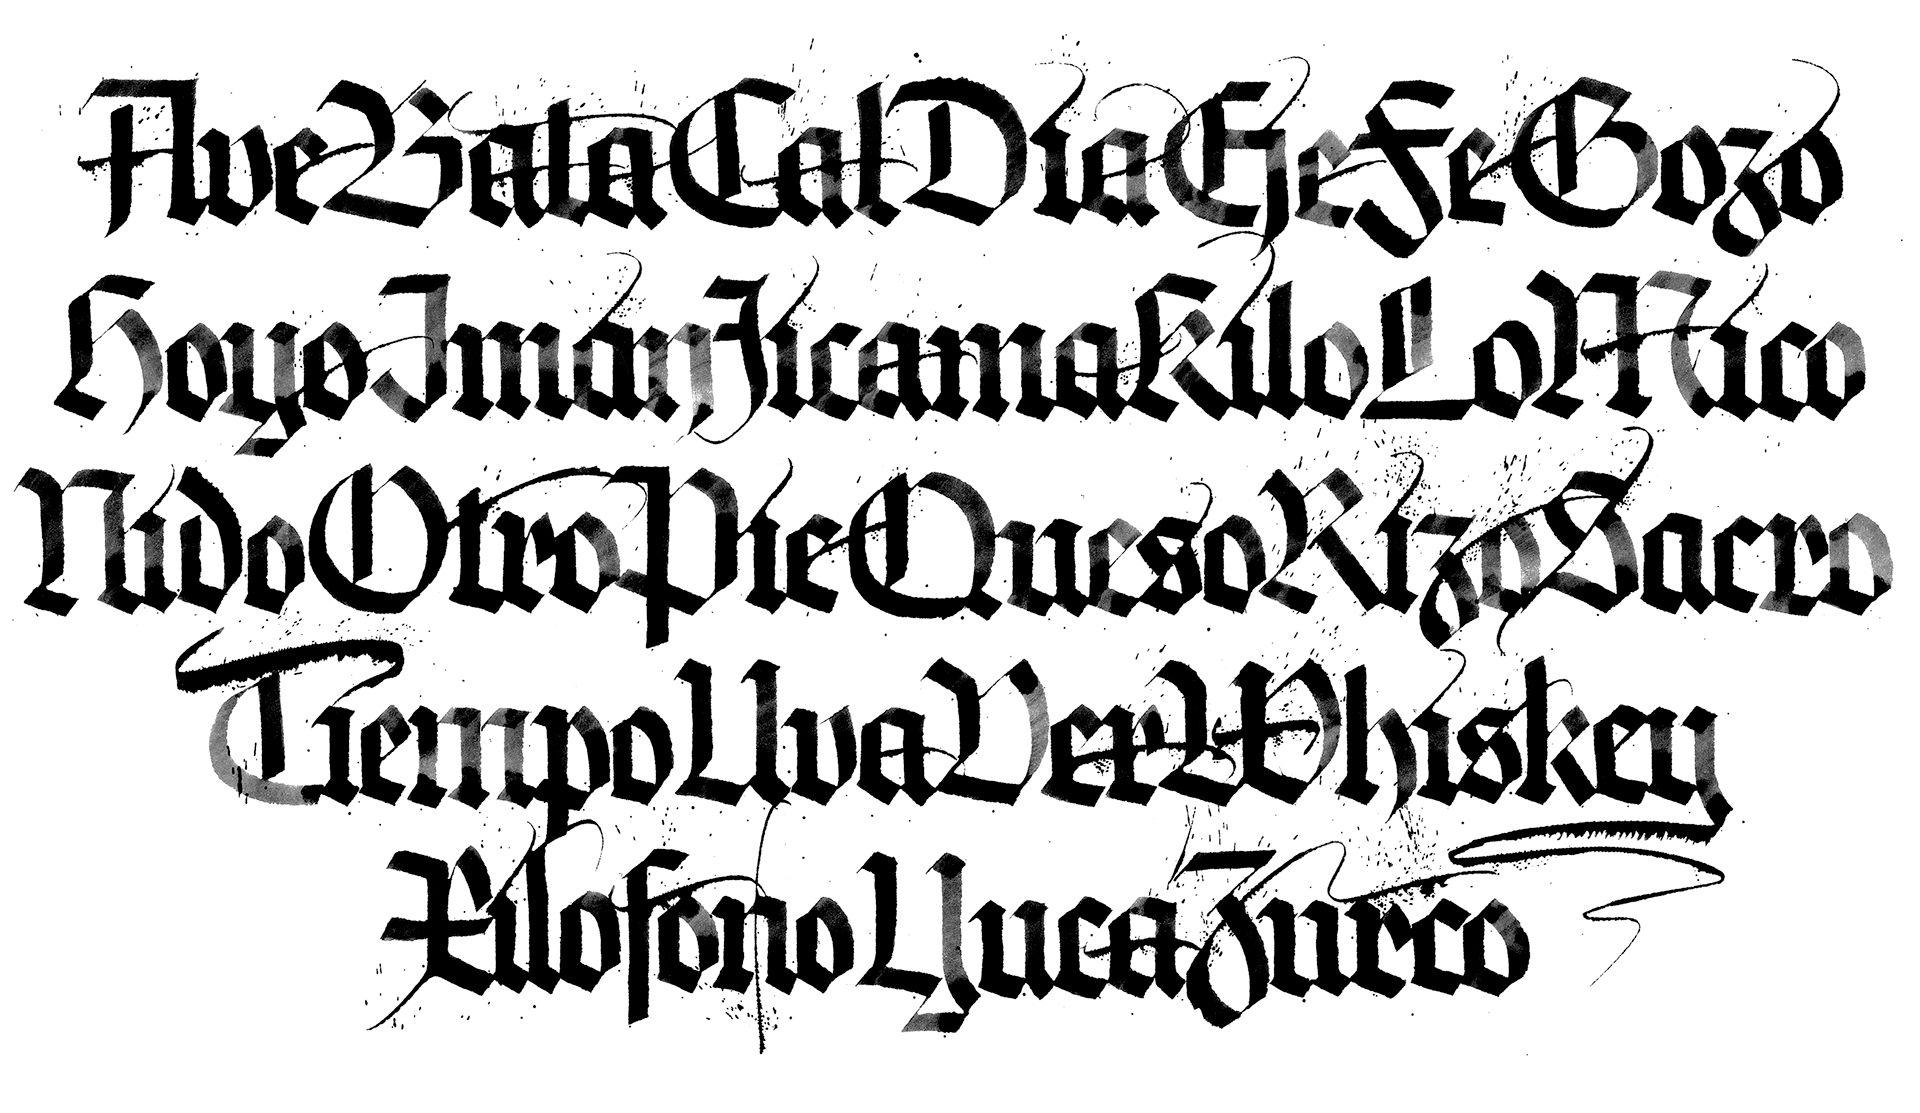 Ave Bata Cal Dia Eje Fe Gozo
Hoyo Iman Jicama Kilo Lo Mico
Nido Otro Pie Queso Rizo Sacro
Tiempo Uva Ver Whiskey
Xilofono Yuca Zurco